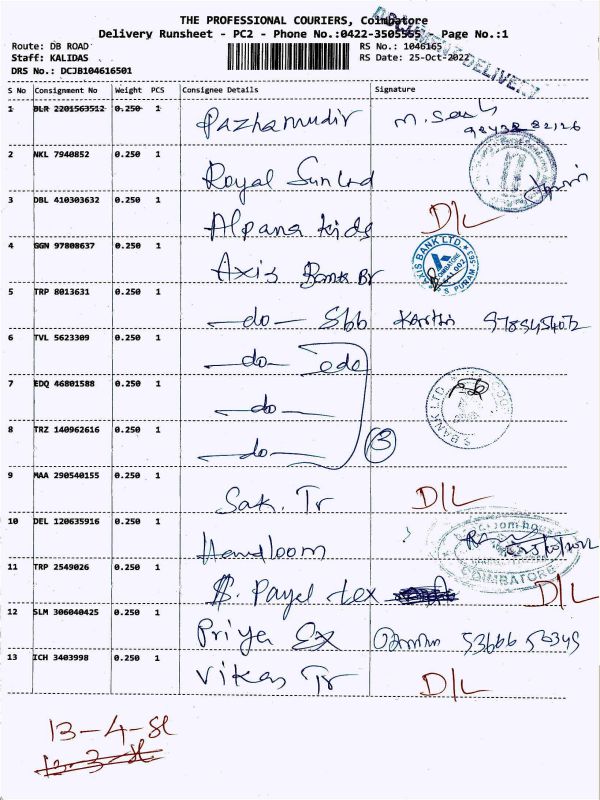 THE PROFESSIONAL COURIERS, Coimbatore
Delivery Runsheet - PC2 - Phone No.:0422-3505555 - Page No.:1
Route: DB ROAD RS No.: 1046165
Staff: KALIDAS RS Date: 25-Oct-2022
DRS No.: DCJB104616501
S No Consignment No Weight PCS Consignee Details Signature
1 BLR 2201563512 0.250 1 Pazhamudir
2 NKL 7940852 0.250 1 Royal Sun Ltd
3 DBL 410303632 0.250 1 Alpana kids D/L
4 GGN 97808637 0.250 1 Axis Bank Br
AXIS BANK LTD.
5 TRP 8013631 0.250 1 do Sbb
6 TVL 5623309 0.250 1 do
7 EDQ 46801588 0.250 1 do
8 TRZ 140962616 0.250 1 do 3
S BANK LTD
9 MAA 290540155 0.250 1 Sak. Tr D/L
10 DEL 120635916 0.250 1 Handloom
COIMBATORE
11 TRP 2549026 0.250 1 Payel tex D/L
12 SLM 306040425 0.250 1 Priya Ex
13 ICH 3403998 0.250 1 Vikas Tr D/L
13-4-Sl